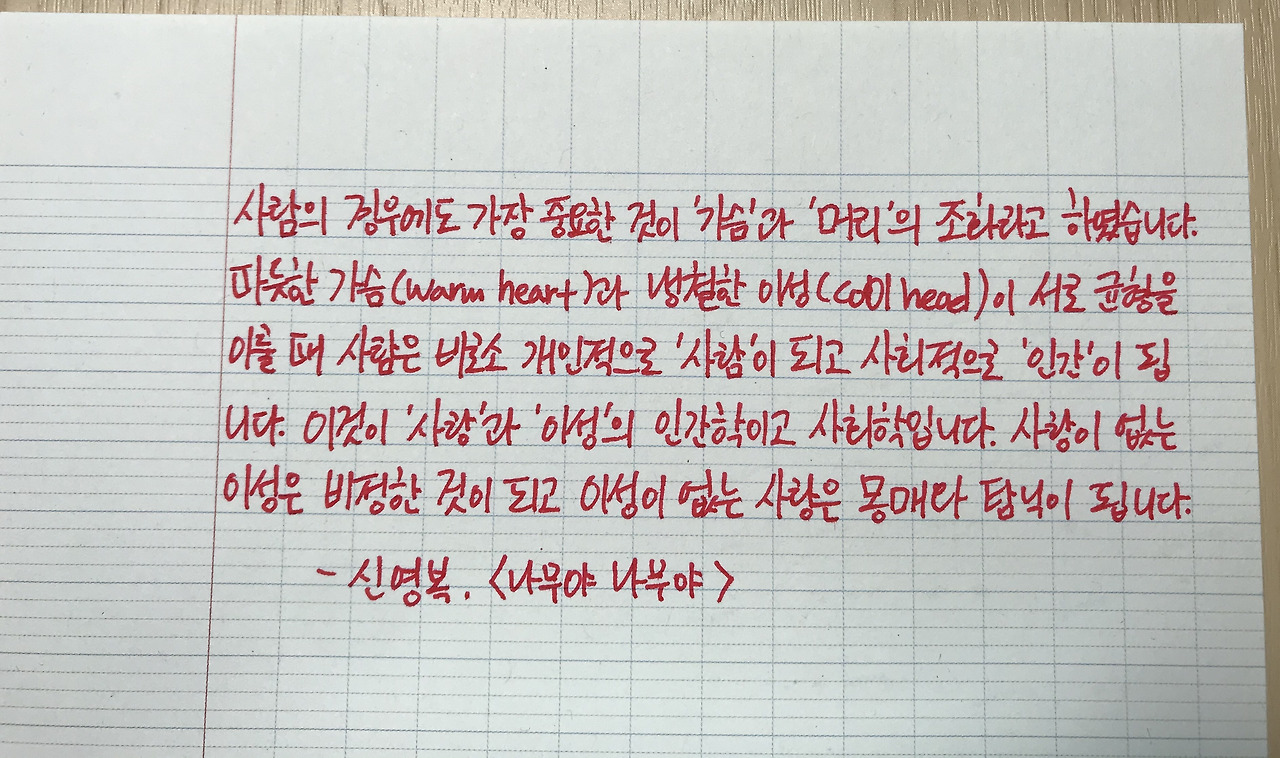 사람의 경우에도 가장 중요한 것이 '가슴'과 '머리'의 조화라고 하였습니다.
따뜻한 가슴(warm heart)과 냉철한 이성(cool head)이 서로 균형을
이룰 때 사람은 비로소 개인적으로 '사람'이 되고 사회적으로 '인간'이 됩
니다. 이것이 '사랑'과 '이성'의 인간학이고 사회학입니다. 사랑이 없는
이성은 비정한 것이 되고 이성이 없는 사랑은 몽매와 탐닉이 됩니다.
- 신영복. <나무야 나무야>